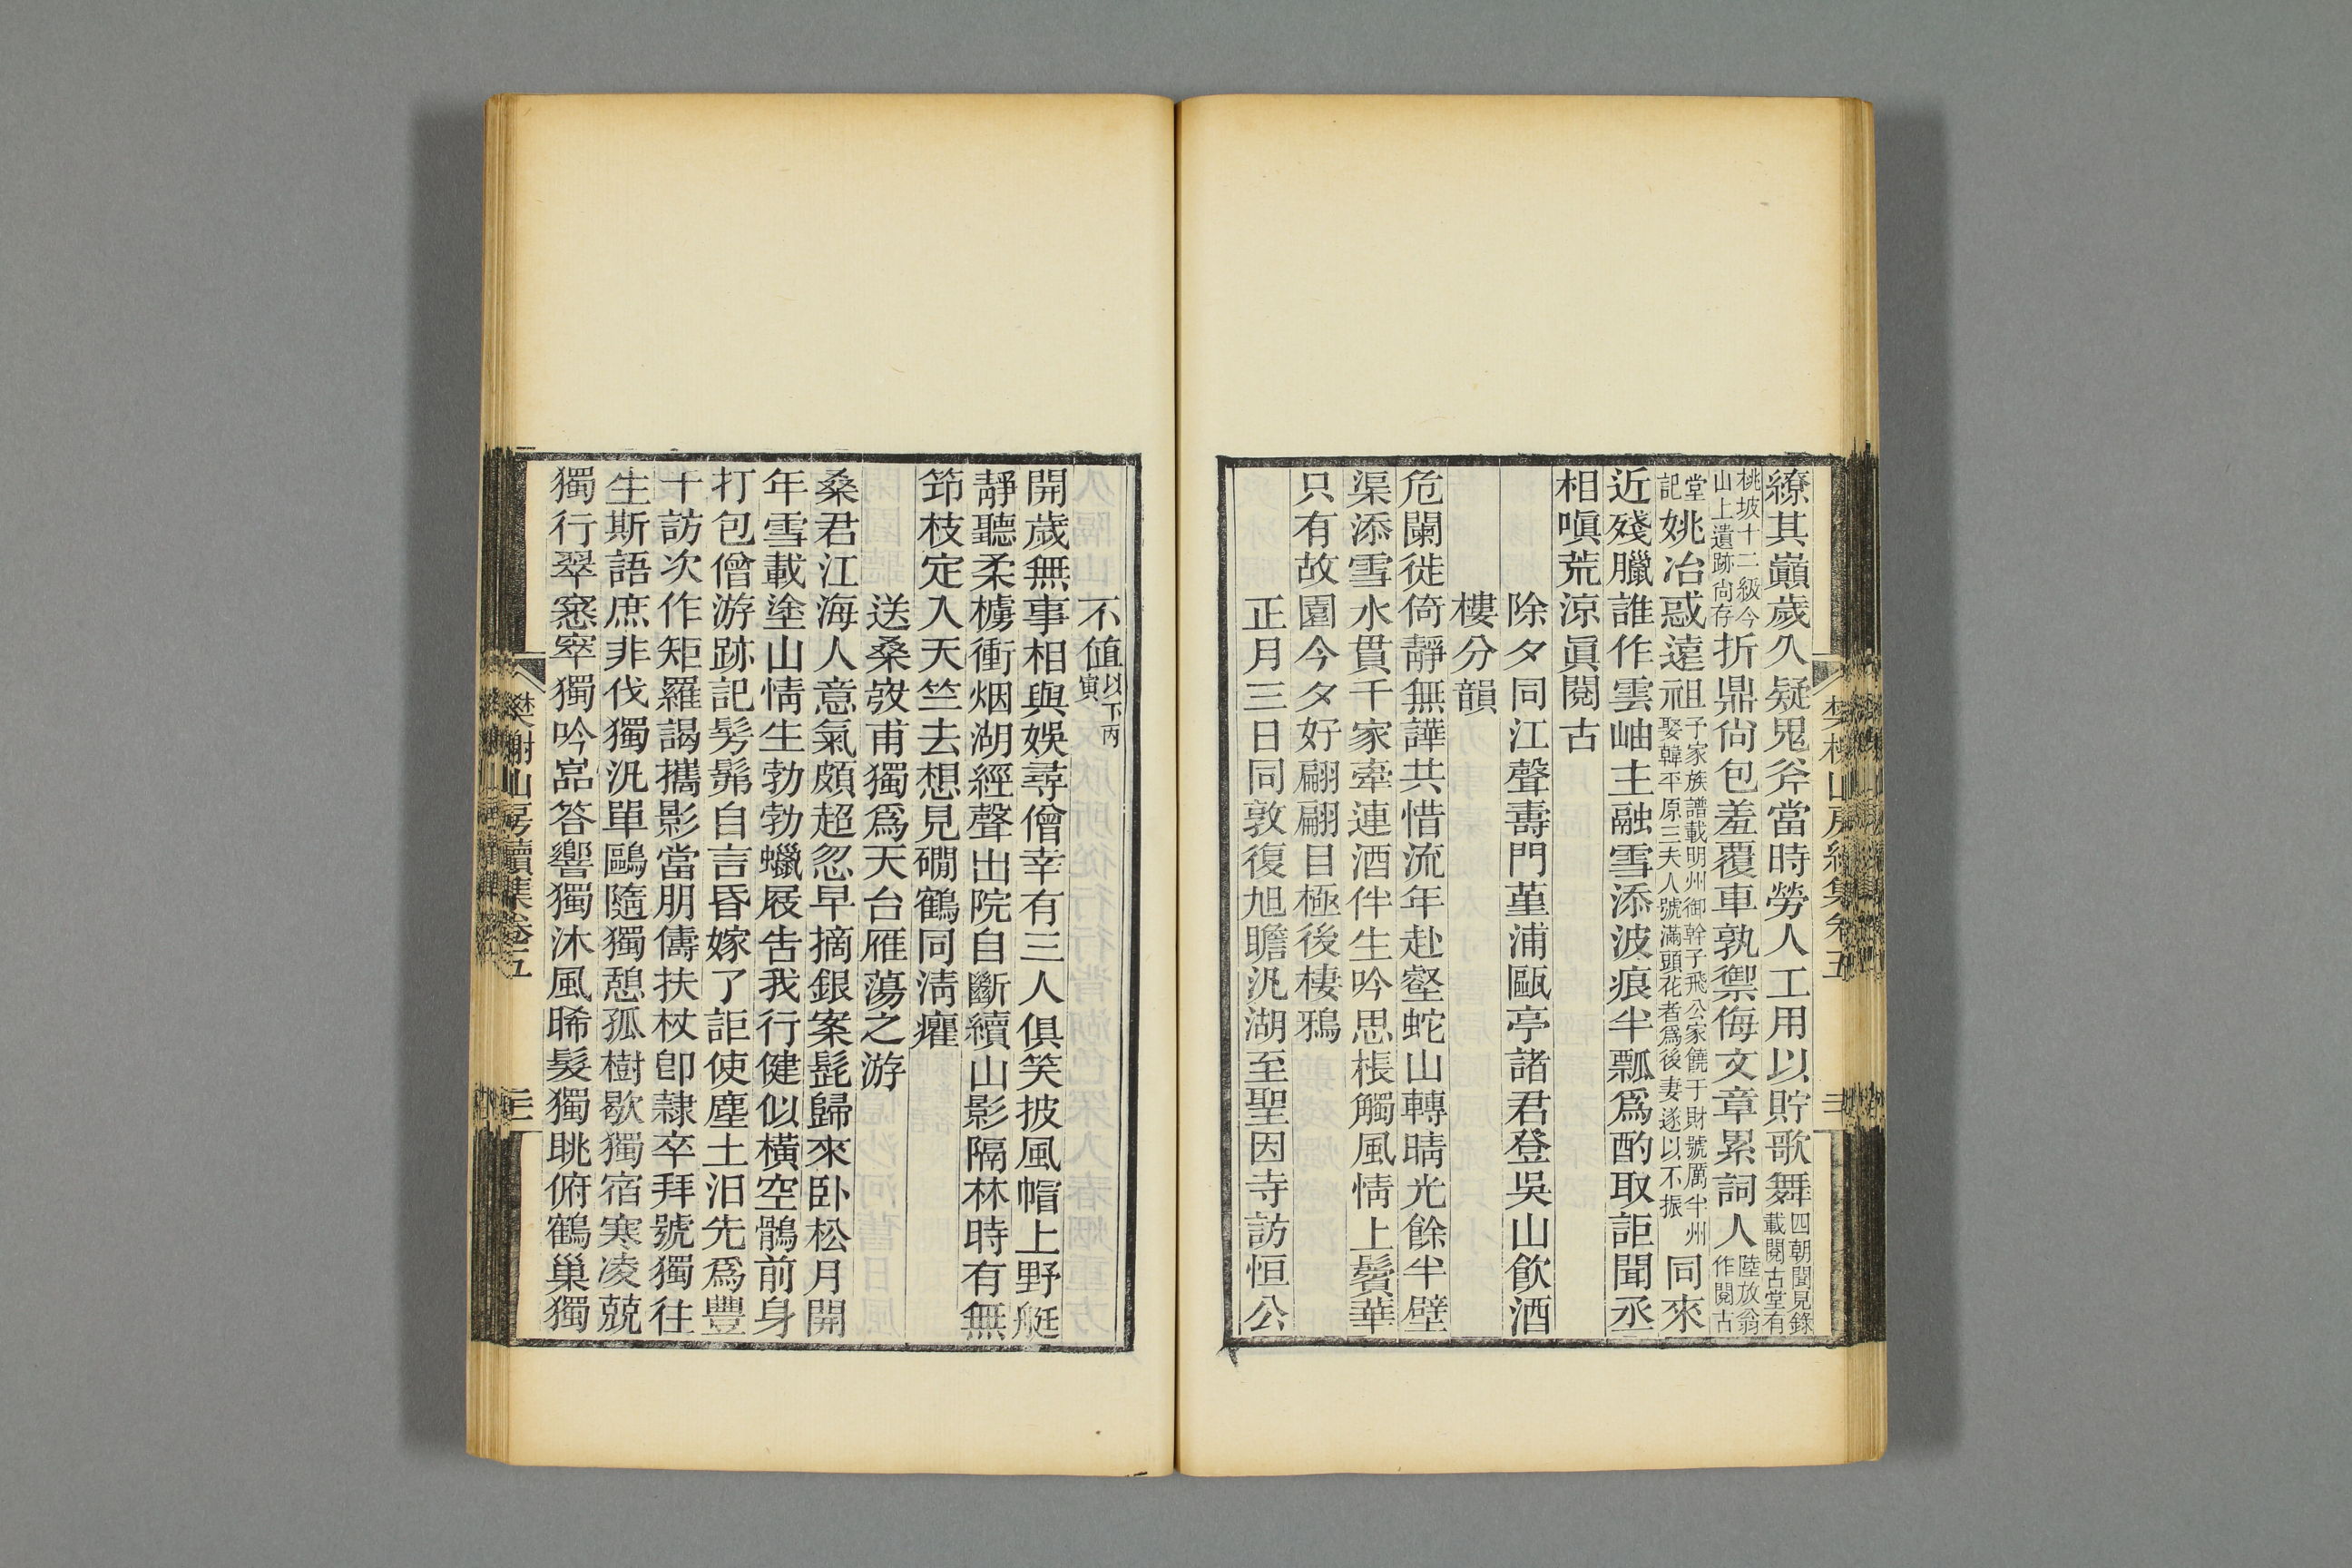 繚其巔歲久疑鬼斧當時勞人工用以貯歌舞四朝聞見錄載閱古堂有
桃坡十二級今山上遺跡尙存折鼎尙包羞覆車孰禦侮文章累詞人陸放翁作閱古
堂記姚冶惑遠祖予家族譜載明州御幹子飛公家饒于財號厲半州娶韓平原三夫人號滿頭花者爲後妻遂以不振同來
近殘臘誰作雲岫主融雪添波痕半瓢爲酌取詎聞丞
相嗔荒涼眞閱古
除夕同江聲壽門堇浦甌亭諸君登吳山飮酒
樓分韻
危闌徙倚靜無譁共惜流年赴壑蛇山轉晴光餘半壁
渠添雪水貫千家牽連酒伴生吟思棖觸風情上鬢華
只有故園今夕好翩翩目極後棲鴉
正月三日同敦復旭瞻汎湖至聖因寺訪恒公
不値以下丙寅
開歲無事相與娛尋僧幸有三人俱笑披風帽上野艇
靜聽柔櫓衝烟湖經聲出院自斷續山影隔林時有無
笻枝定入天竺去想見磵鶴同淸癯
送桑弢甫獨爲天台雁蕩之游
桑君江海人意氣頗超忽早摘銀案髭歸來卧松月開
年雪載塗山情生勃勃蠟屐告我行健似橫空鶻前身
打包僧游跡記髣髴自言昏嫁了詎使塵土汨先爲豐
干訪次作矩羅謁攜影當朋儔扶杖卽隸卒拜號獨往
生斯語庶非伐獨汎單鷗隨獨憩孤樹歇獨宿寒凌兢
獨行翠窸窣獨吟嵓答響獨沐風晞髮獨眺俯鶴巢獨
樊榭山房續集卷五